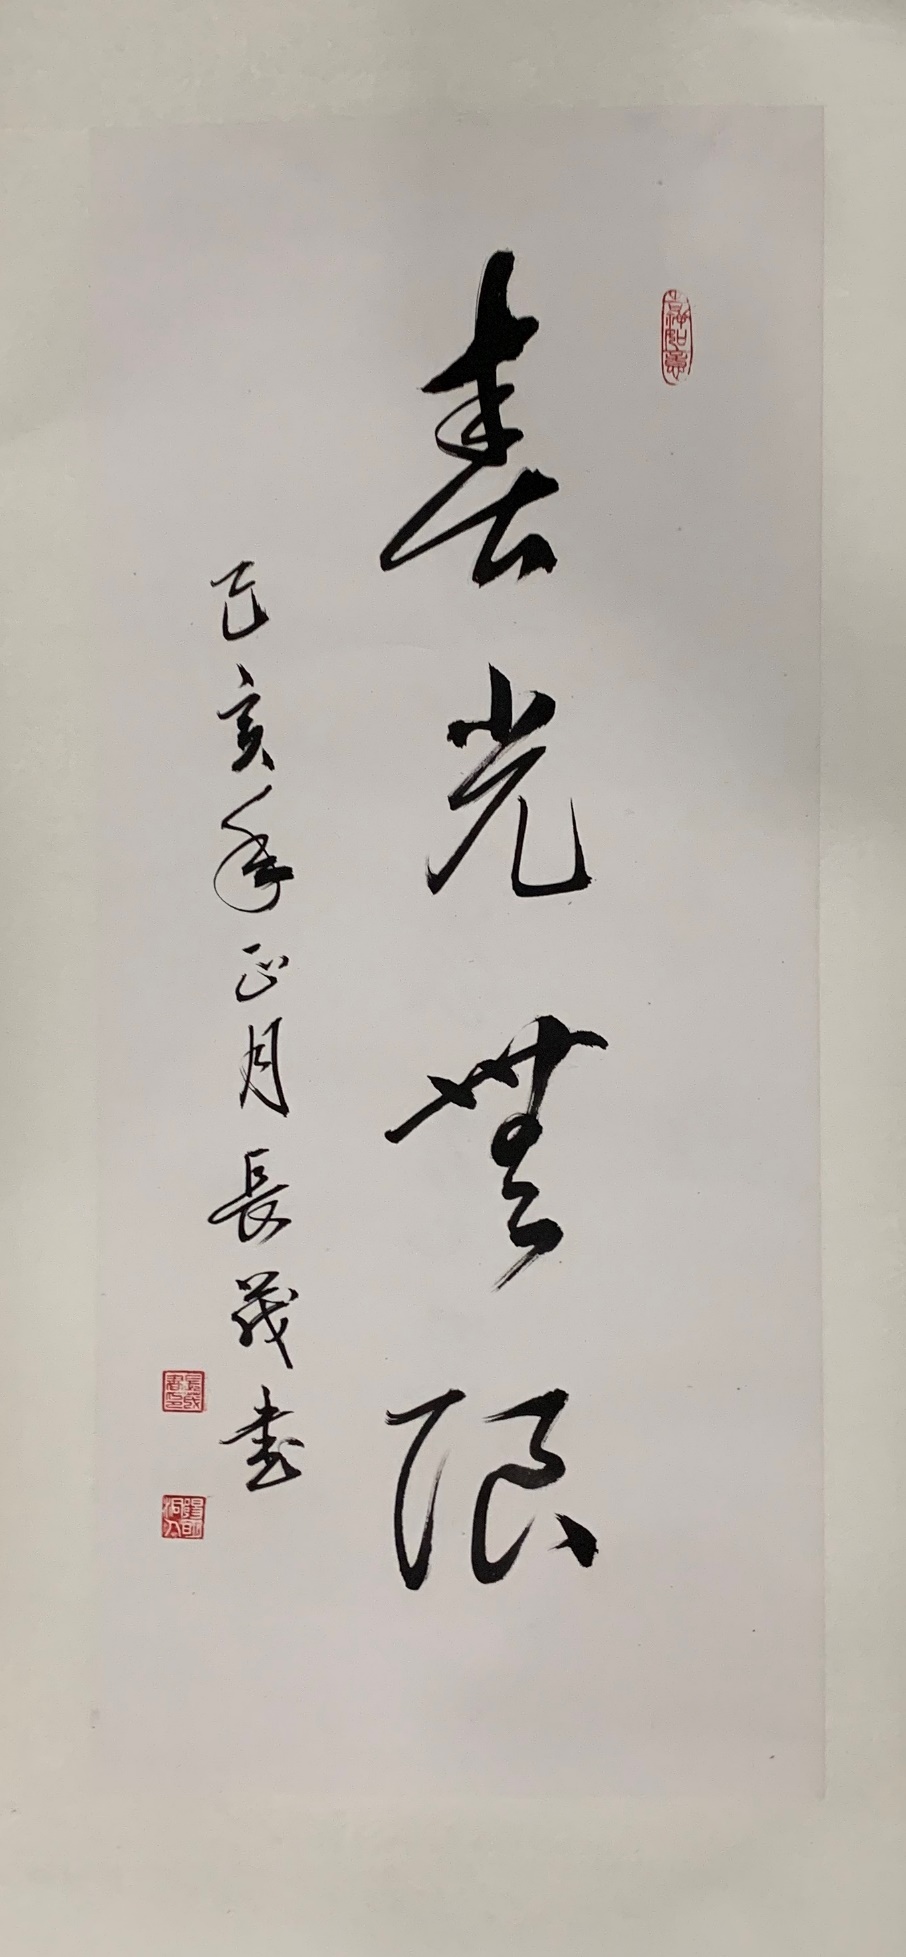 春光無限
己亥年正月長茂書